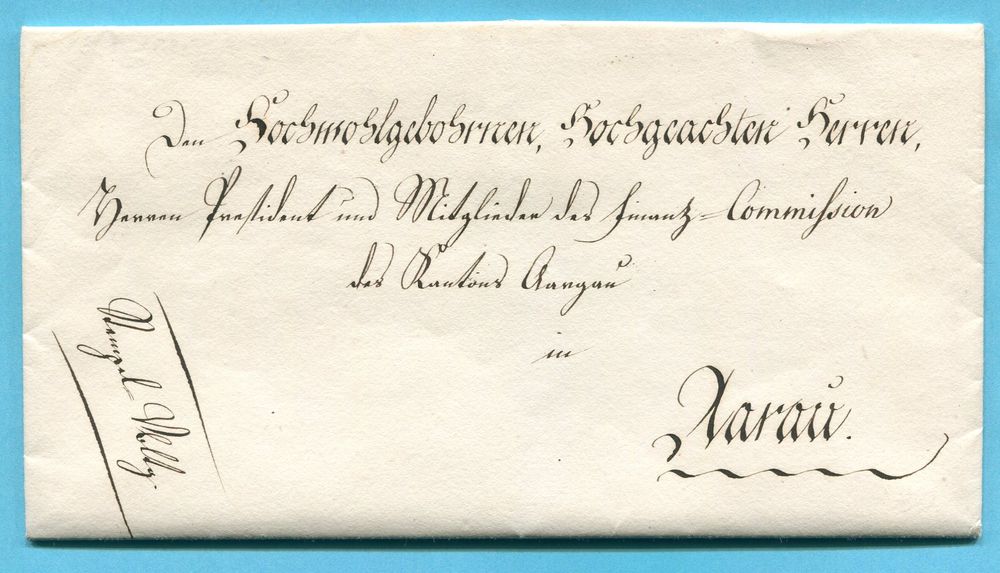 Den Hochwohlgebohrnen, Hochgeachten Herren,
Herren President und Mitglieder der Finanz-Commission
des Kantons Aargau
in
Aarau.
Stempel-